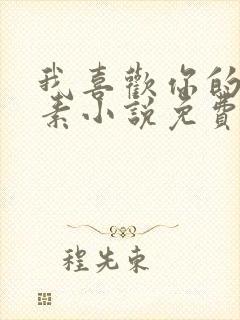 我喜歡你的
素小說免費
程先東